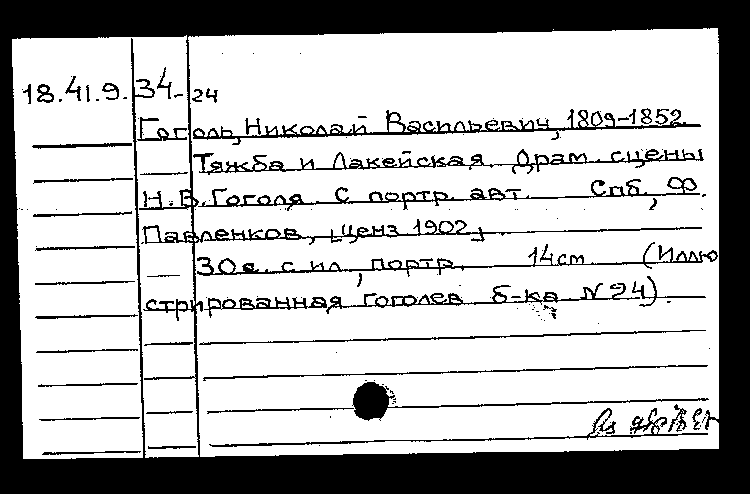 18.41.9.34-24
Гоголь, Николай Васильевич, 1809-1852.
Тяжба и Лакейская. Драм. сцены
Н.В. Гоголя. С портр. авт. Спб., Ф.
Павленков, [ценз 1902].
30 с. с ил., портр. 14 см (Иллю
стрированная гоголев. б-ка N 24).